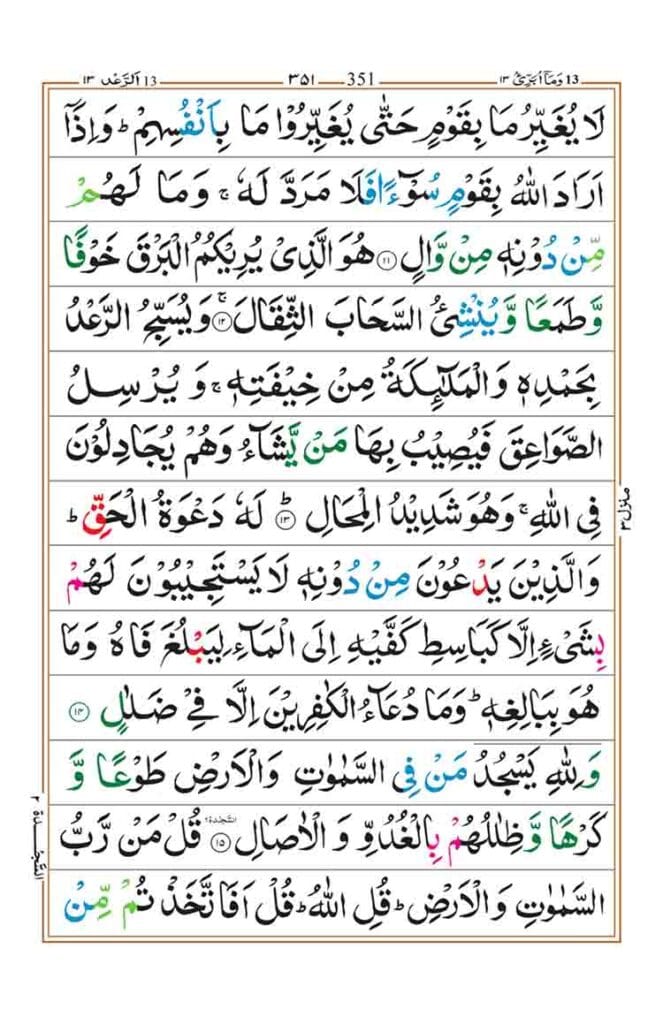 ١٣ وَمَآ اُبَرِّئُ 13 351 ٣٥١ 13 اَلرَّعْد ١٣
لَا يُغَيِّرُ مَا بِقَوْمٍ حَتّٰى يُغَيِّرُوْا مَا بِاَنْفُسِهِمْ ؕ وَاِذَاۤ
اَرَادَ اللّٰهُ بِقَوْمٍ سُوْٓءًا فَلَا مَرَدَّ لَهٗ ۚ وَمَا لَهُمْ
مِّنْ دُوْنِهٖ مِنْ وَّالٍ ۝١١ هُوَ الَّذِىْ يُرِيْكُمُ الْبَرْقَ خَوْفًا
وَّطَمَعًا وَّيُنْشِئُ السَّحَابَ الثِّقَالَ ۝١٢ۚ وَيُسَبِّحُ الرَّعْدُ
بِحَمْدِهٖ وَالْمَلٰٓئِكَةُ مِنْ خِيْفَتِهٖ ۚ وَيُرْسِلُ
الصَّوَاعِقَ فَيُصِيْبُ بِهَا مَنْ يَّشَآءُ وَهُمْ يُجَادِلُوْنَ
فِى اللّٰهِ ۚ وَهُوَ شَدِيْدُ الْمِحَالِ ۝١٣ؕ لَهٗ دَعْوَةُ الْحَقِّ ؕ
وَالَّذِيْنَ يَدْعُوْنَ مِنْ دُوْنِهٖ لَا يَسْتَجِيْبُوْنَ لَهُمْ
بِشَىْءٍ اِلَّا كَبَاسِطِ كَفَّيْهِ اِلَى الْمَآءِ لِيَبْلُغَ فَاهُ وَمَا
هُوَ بِبَالِغِهٖ ؕ وَمَا دُعَآءُ الْكٰفِرِيْنَ اِلَّا فِىْ ضَلٰلٍ ۝١٤
وَلِلّٰهِ يَسْجُدُ مَنْ فِى السَّمٰوٰتِ وَالْاَرْضِ طَوْعًا وَّ
كَرْهًا وَّظِلٰلُهُمْ بِالْغُدُوِّ وَالْاٰصَالِ ۝١٥ السَّجْدَة قُلْ مَنْ رَّبُّ
السَّمٰوٰتِ وَالْاَرْضِ ؕ قُلِ اللّٰهُ ؕ قُلْ اَفَاتَّخَذْتُمْ مِّنْ
منزل ٣
السَّجْدَة ٢